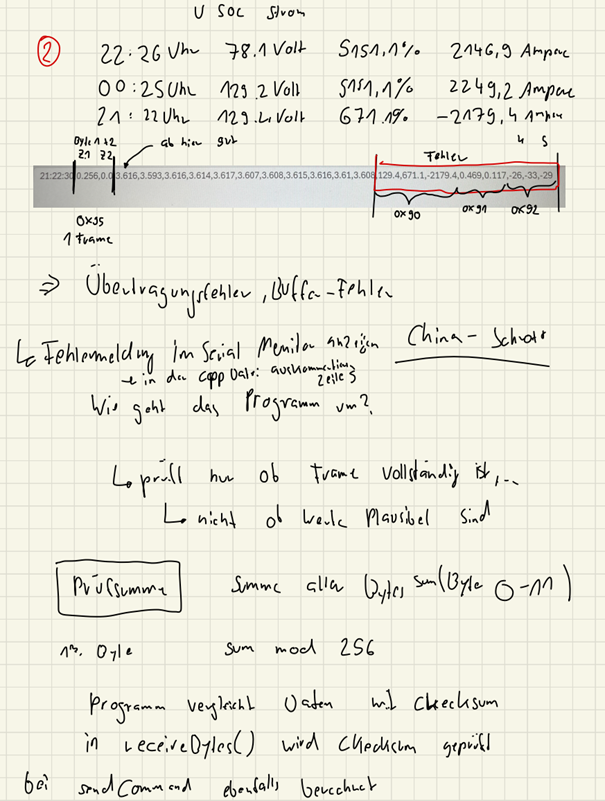 U SOC Strom
② 22:26 Uhr 78.1 Volt 5151,1% 2146,9 Ampere
00:25 Uhr 129.2 Volt 5151,1% 2249,2 Ampere
21:22 Uhr 129.4 Volt 671.1% -2179,4 Ampere
Byte 1+2 ab hier gut 4 5
Z1 Z2 Fehler
21:22:30 0.256,0.0 3.616,3.593,3.616,3.614,3.617,3.607,3.608,3.615,3.616,3.61,3.608,129.4,671.1,-2179.4,0.469,0.117,-26,-33,-29
0x95 0x90 0x91 0x92
1 Frame
⇒ Übertragungsfehler, Buffer-Fehler
↳ Fehlermeldung im Serial Monitor anzeigen China-Schrott
→ in der cpp Datei auskommentierte
Zeile }
Wie geht das Programm um?
↳ prüft nur ob Frame vollständig ist,...
↳ nicht ob Werte Plausibel sind
Prüfsumme Summe aller Bytes sum(Byte 0-11)
13. Byte sum mod 256
Programm vergleicht Daten mit Checksum
in receiveBytes() wird Checksum geprüft
bei sendCommand ebenfalls berechnet